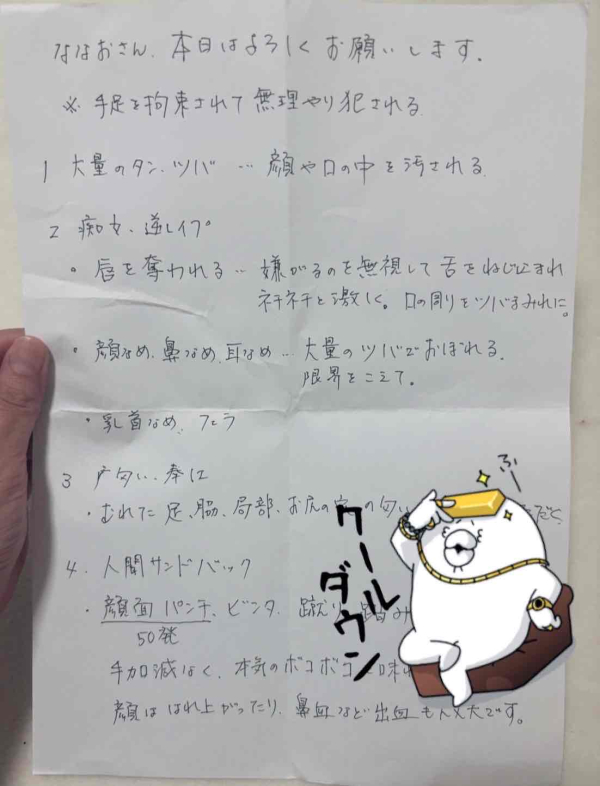 ななおさん、本日はよろしくお願いします。
※ 手足を拘束されて無理やり犯される
1 大量のタン、ツバ … 顔や口の中を汚される
2 痴女、逆レイプ
・唇を奪われる … 嫌がるのを無視して舌をねじこまれ
ネチネチと激しく。口の周りをツバまみれに。
・顔なめ、鼻なめ、耳なめ … 大量のツバでおぼれる。
限界をこえて。
・乳首なめ、フェラ
3 匂い
・むれた足、脇、局部、お尻の穴の匂い
4. 人間サンドバック
・顔面パンチ、ビンタ、蹴り、踏み
50発
手加減なく、本気のボコボコ
顔ははれ上がったり、鼻血など出血も大丈夫です。
ふー
クールダウン